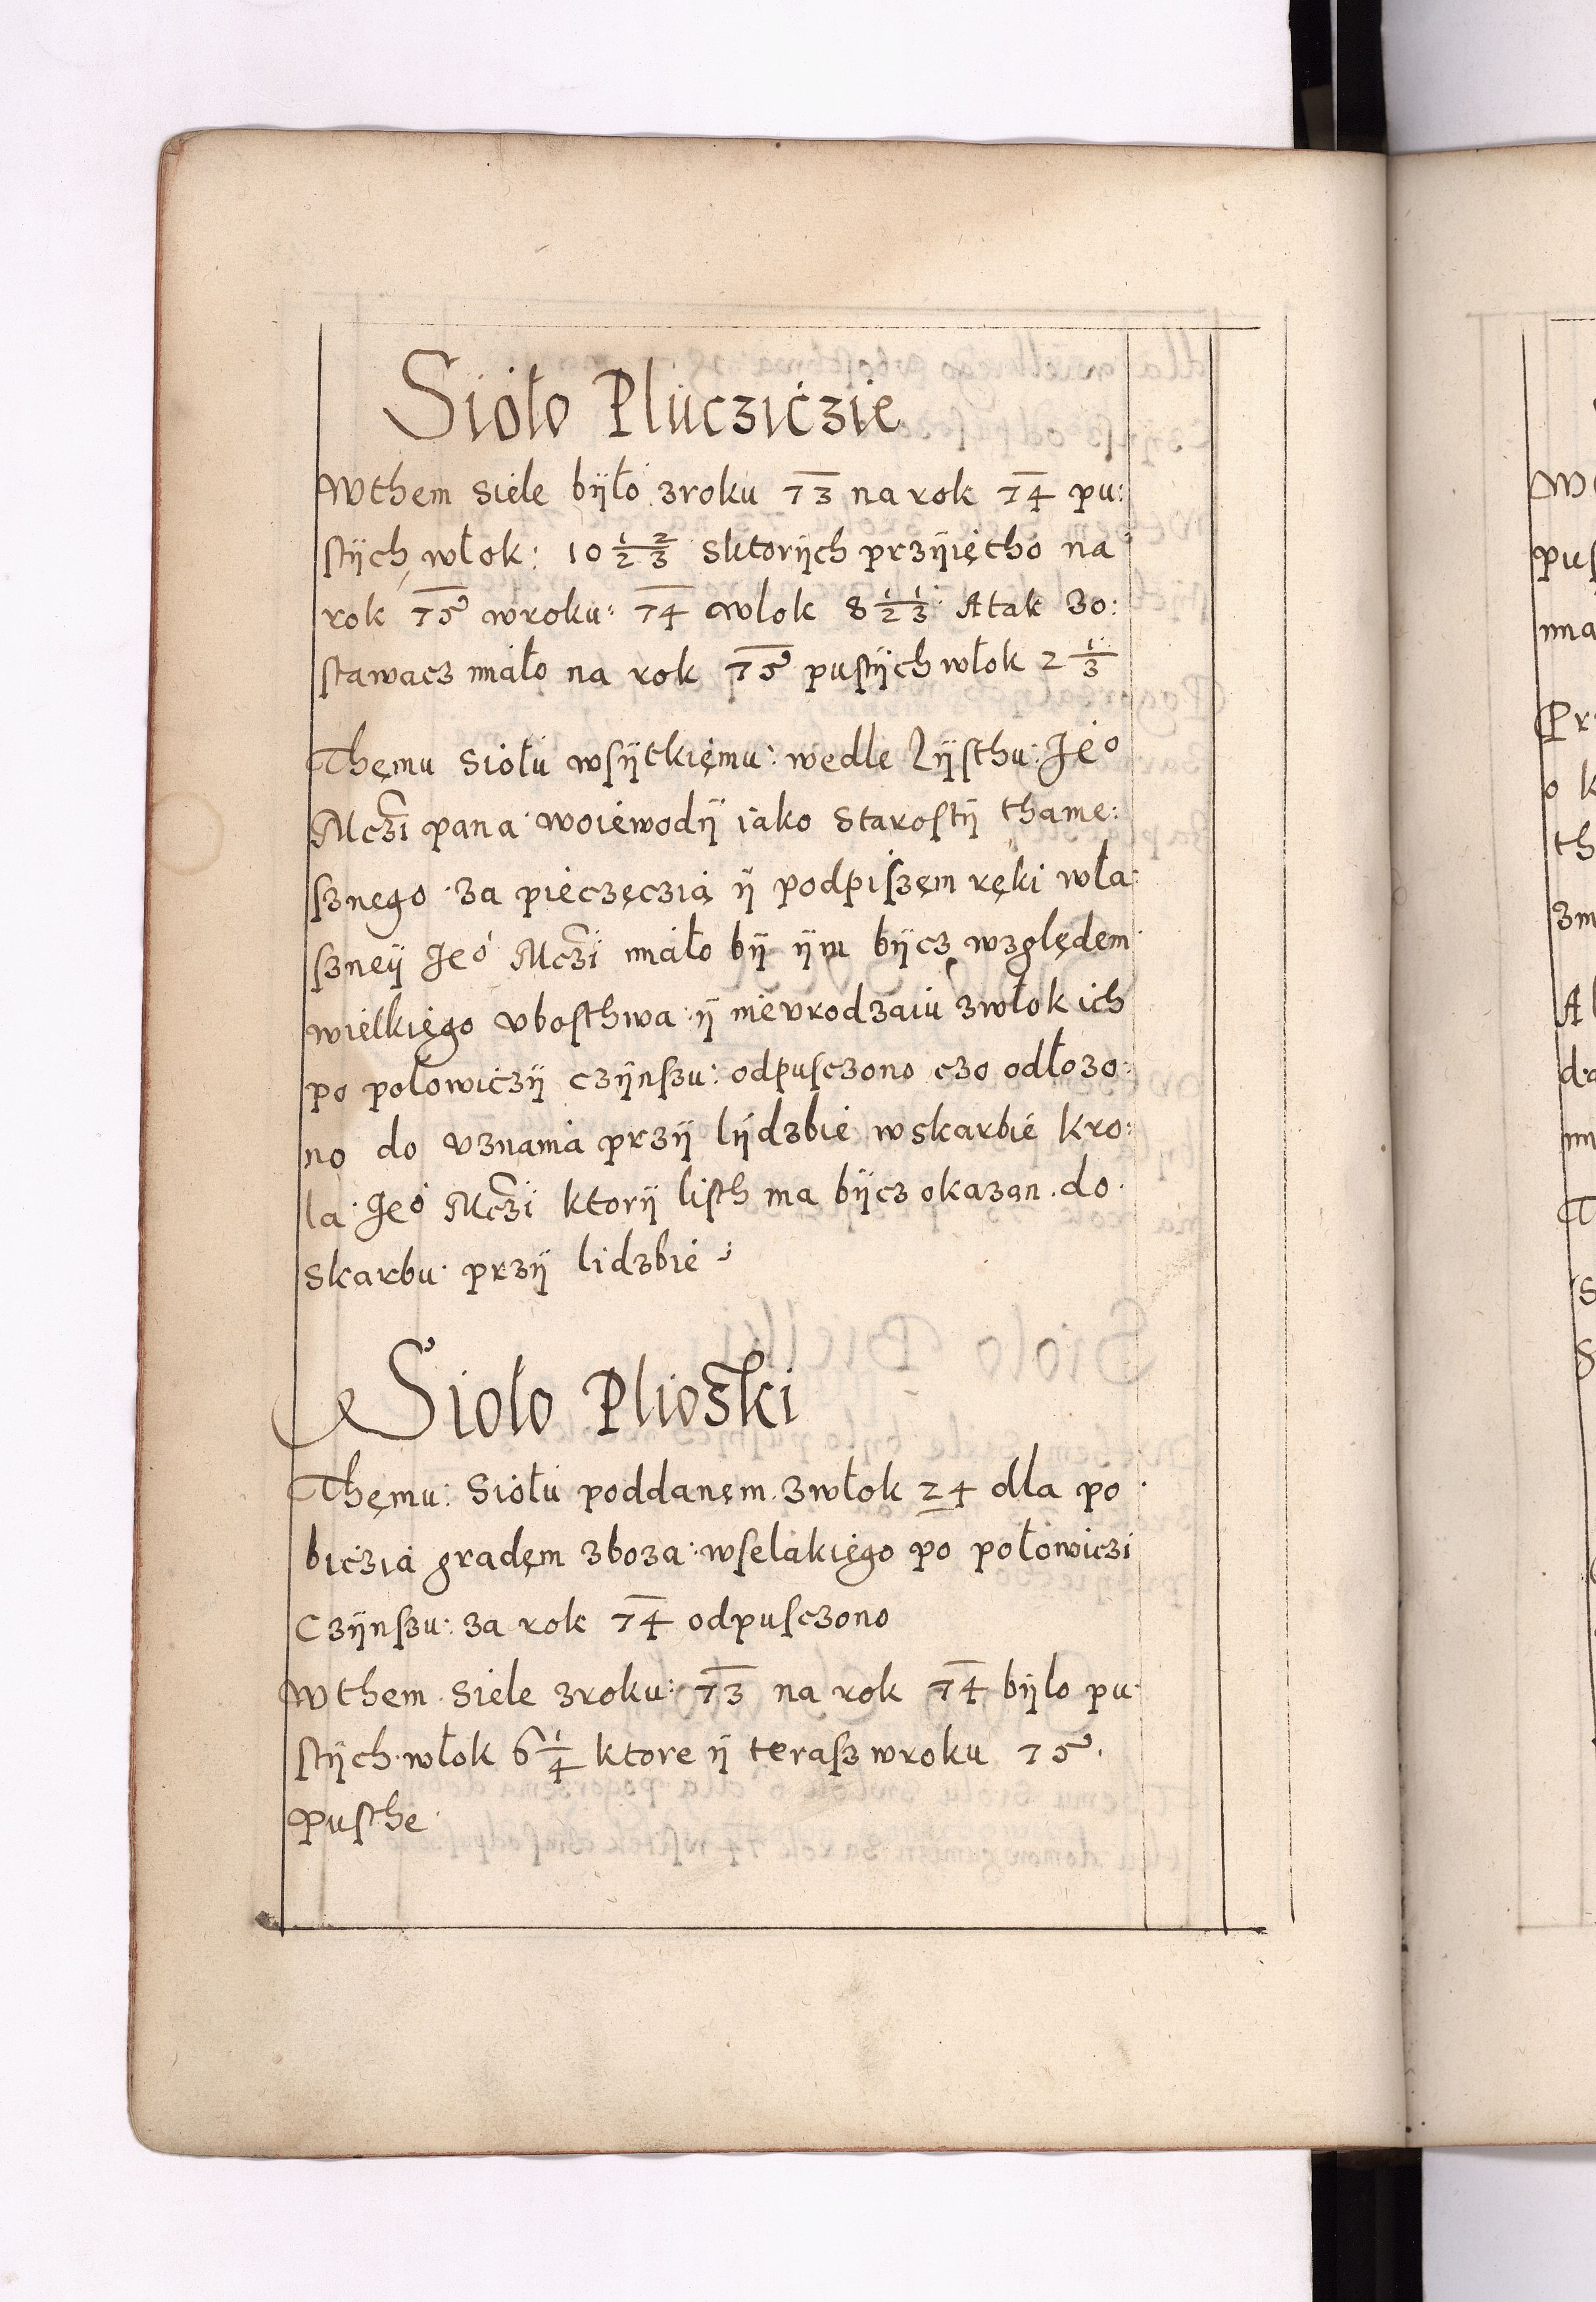 Sioło Plucziczie
Wthem siele byłó zroku 73 na rok 74 pu:
stÿch włok: 10 1/2 2/3 sktorÿch przÿięthó na
rok 75 wroku: 74 wlok 8 1/2 1/3 Atak zo:
stawacz miało na rok 75 pustÿch włok 2 1/3
Thęmu siołu wsÿtkięmu: wedle Lÿsthu: Ieo
Mczi pana woiewodÿ iako starostÿ thame:
sznego za pieczęczią ÿ podpiszęm ręki wła:
sznеÿ Ieo Mczi miało bÿ ÿm bÿcz względem
wielkięgo vbosthwa ÿ nievrodzaiu zwłok ich
po połowiczÿ czÿnszu: odpusczono czo odłozo:
no do vznania przÿ lÿdzbie wskarbie kro:
la Ieo Mczi ktorÿ listh ma bÿcz okazan do
skarbu przÿ lidzbie
Sioło Plioski
Thęmu: siołu poddanęm zwłok 24 dla po
biczia gradęm zboza: wselakięgo po połowiczi
Czÿnszu: za rok 74 odpusczono
Wthem siele zroku: 73 na rok 74 bÿło pu
stÿch włok 6 1/4 ktore ÿ terasz wroku 75
pusthe